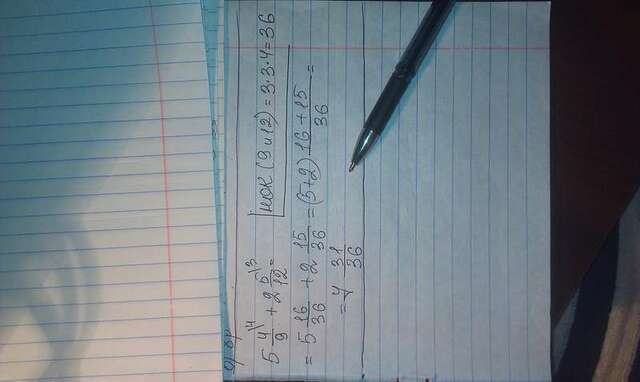 5 4\4/9 + 2 5\3/12 =
НОК (9 и 12) = 3·3·4 = 36
= 5 16/36 + 2 15/36 = (5+2) 16+15/36 =
= 7 31/36